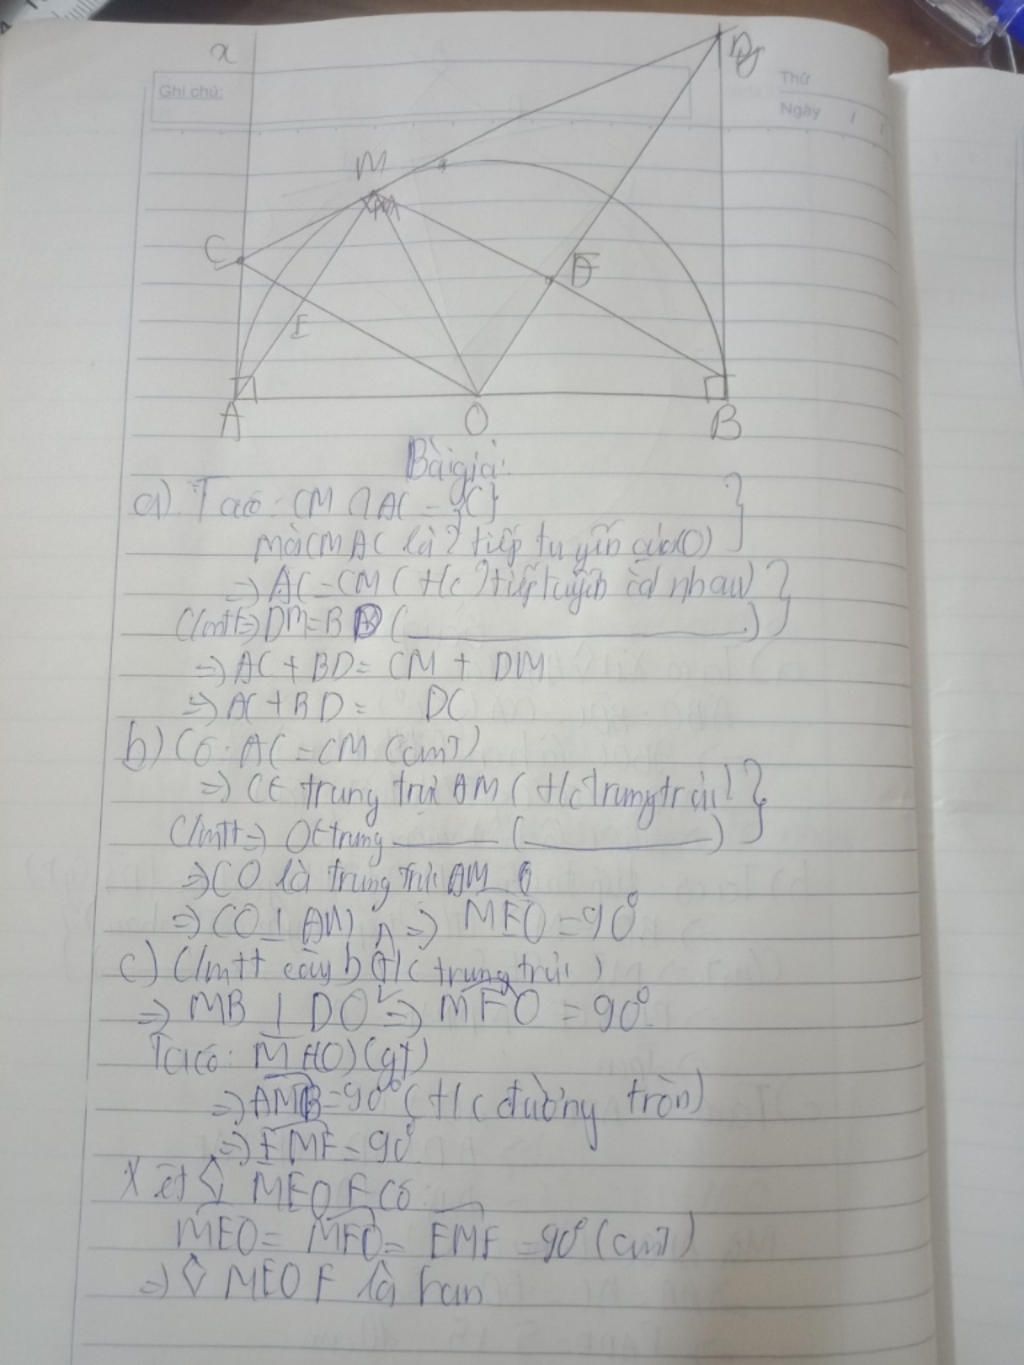 x
D
y
Ghi chú:
Thứ
Ngày / /
M
C
F
E
A
O
B
Bài giải
a) Ta có: CM ∩ AC = {C}
mà CM AC là 2 tiếp tuyến của (O)
⇒ AC = CM (t/c 2 tiếp tuyến cắt nhau)
C/mtt ⇒ DM = BD ( )
⇒ AC + BD = CM + DM
⇒ AC + BD = DC
b) Có: AC = CM (cmt)
⇒ C ∈ trung trực AM (t/c trung trực)
C/mtt ⇒ O ∈ trung ( )
⇒ CO là trung trực AM
⇒ CO ⊥ AM ⇒ MEO = 90°
c) C/mtt câu b (t/c trung trực)
⇒ MB ⊥ DO ⇒ MFO = 90°
Ta có: M ∈ (O) (gt)
⇒ AMB = 90° (t/c đường tròn)
⇒ EMF = 90°
Xét ◇ MEOF có:
MEO = MFO = EMF = 90° (cmt)
⇒ ◇ MEOF là hcn